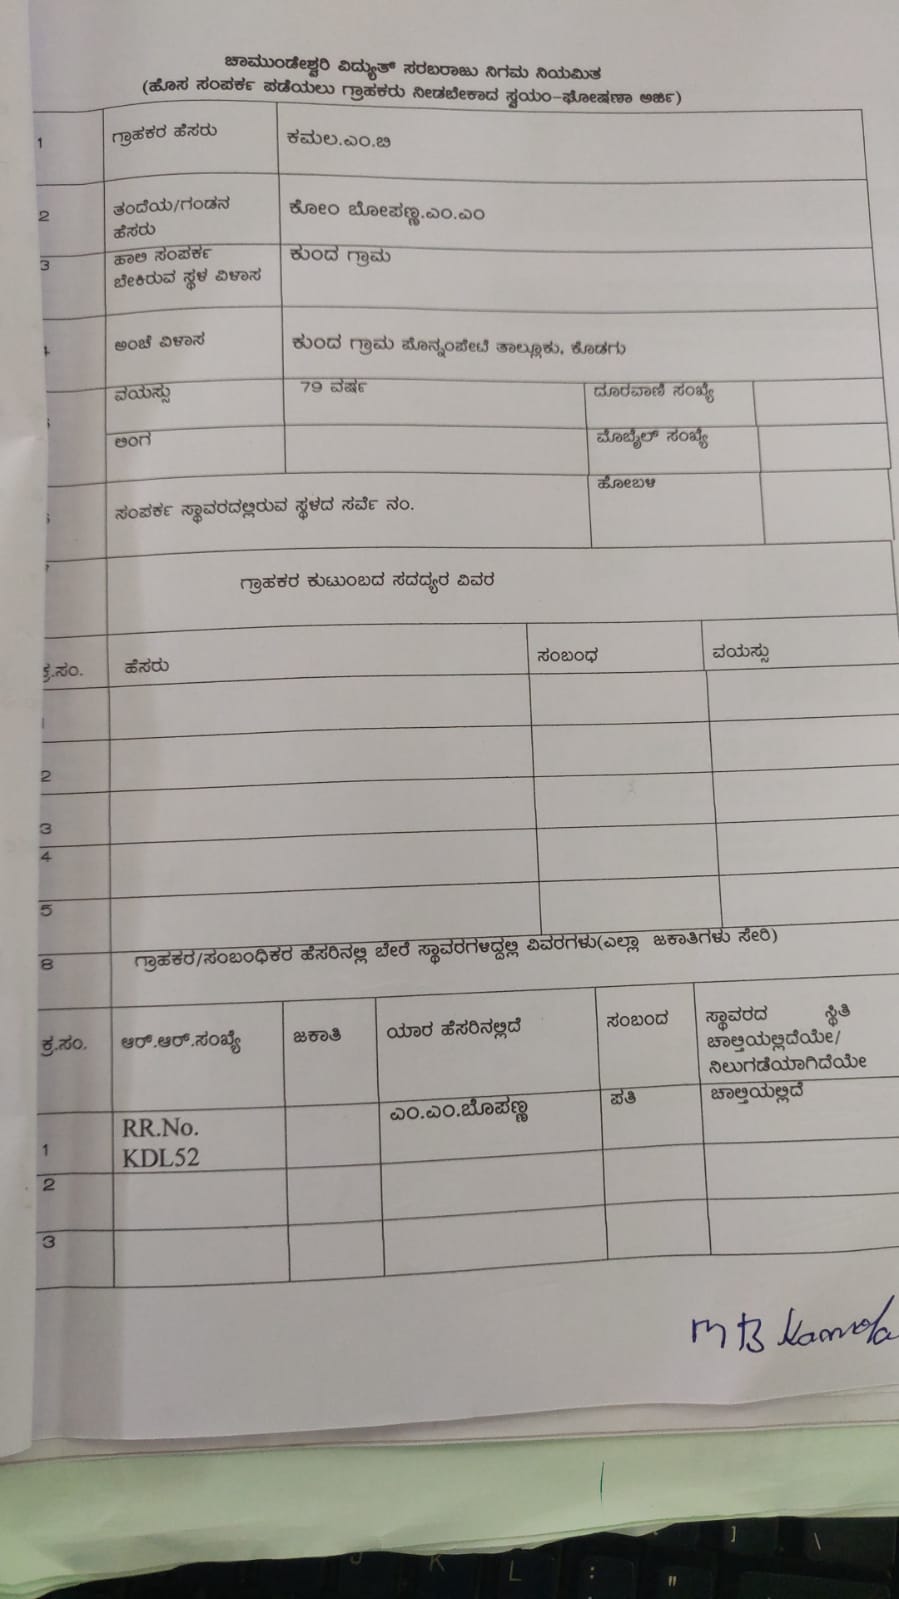 ಚಾಮುಂಡೇಶ್ವರಿ ವಿದ್ಯುತ್ ಸರಬರಾಜು ನಿಗಮ ನಿಯಮಿತ
(ಹೊಸ ಸಂಪರ್ಕ ಪಡೆಯಲು ಗ್ರಾಹಕರು ನೀಡಬೇಕಾದ ಸ್ವಯಂ-ಘೋಷಣಾ ಅರ್ಜಿ)
1 ಗ್ರಾಹಕರ ಹೆಸರು ಕಮಲ.ಎಂ.ಬಿ
2 ತಂದೆಯ/ಗಂಡನ ಕೋಂ ಬೋಪಣ್ಣ.ಎಂ.ಎಂ
ಹೆಸರು
3 ಹಾಲಿ ಸಂಪರ್ಕ ಕುಂದ ಗ್ರಾಮ
ಬೇಕಿರುವ ಸ್ಥಳ ವಿಳಾಸ
ಅಂಚೆ ವಿಳಾಸ ಕುಂದ ಗ್ರಾಮ ಪೊನ್ನಂಪೇಟೆ ತಾಲ್ಲೂಕು, ಕೊಡಗು
ವಯಸ್ಸು 79 ವರ್ಷ ದೂರವಾಣಿ ಸಂಖ್ಯೆ
ಲಿಂಗ ಮೊಬೈಲ್ ಸಂಖ್ಯೆ
ಸಂಪರ್ಕ ಸ್ಥಾವರದಲ್ಲಿರುವ ಸ್ಥಳದ ಸರ್ವೆ ನಂ. ಹೋಬಳಿ
ಗ್ರಾಹಕರ ಕುಟುಂಬದ ಸದದ್ಯರ ವಿವರ
ಕ್ರ.ಸಂ. ಹೆಸರು ಸಂಬಂಧ ವಯಸ್ಸು
1
2
3
4
5
8 ಗ್ರಾಹಕರ/ಸಂಬಂಧಿಕರ ಹೆಸರಿನಲ್ಲಿ ಬೇರೆ ಸ್ಥಾವರಗಳಿದ್ದಲ್ಲಿ ವಿವರಗಳು(ಎಲ್ಲಾ ಜಕಾತಿಗಳು ಸೇರಿ)
ಕ್ರ.ಸಂ. ಆರ್.ಆರ್.ಸಂಖ್ಯೆ ಜಕಾತಿ ಯಾರ ಹೆಸರಿನಲ್ಲಿದೆ ಸಂಬಂದ ಸ್ಥಾವರದ ಸ್ಥಿತಿ
ಚಾಲ್ತಿಯಲ್ಲಿದೆಯೇ/
ನಿಲುಗಡೆಯಾಗಿದೆಯೇ
1 RR.No. ಎಂ.ಎಂ.ಬೊಪಣ್ಣ ಪತಿ ಚಾಲ್ತಿಯಲ್ಲಿದೆ
KDL52
2
3
M B Kamala
K L : " ] \